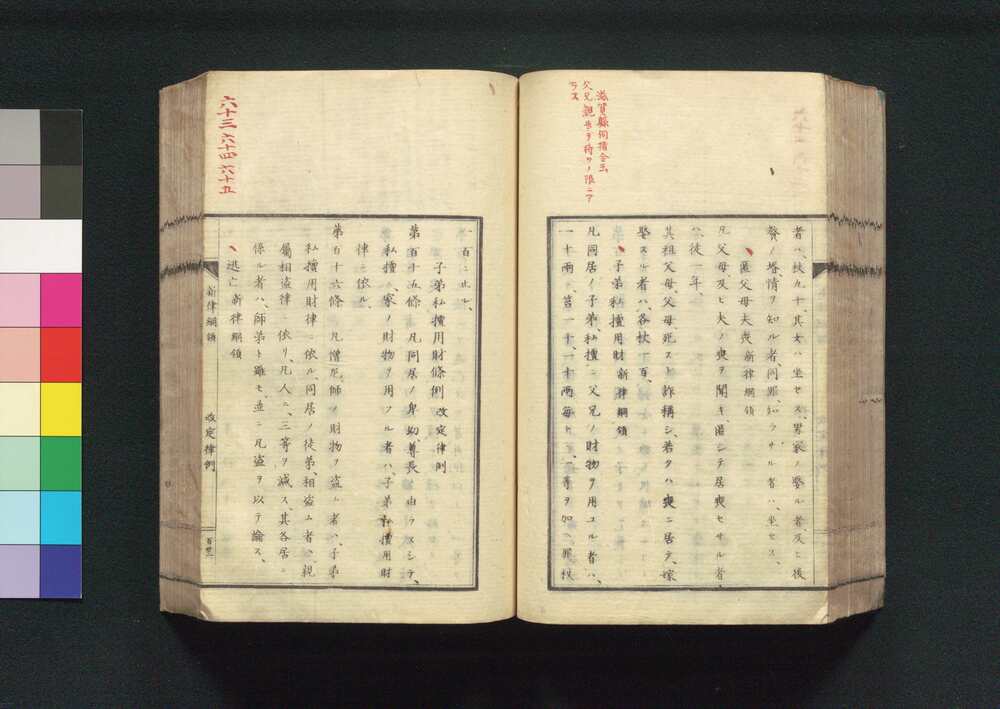 滋賀縣伺指令云
父兄親告ヲ待ツノ限ニア
ラス
者ハ、杖九十、其女ハ坐セス、男家ノ娶ル者、及ヒ後
贅ノ婿情ヲ知ル者同罪、知ラサル者ハ、坐セス、
匿父母夫喪 新律綱領
凡父母及ヒ夫ノ喪ヲ聞キ匿シテ居喪セサル者
ハ、徒一年、
其祖父母父母、死スト詐稱シ、若クハ喪ニ居テ、嫁
娶スル者ハ、各杖一百、
子弟私擅用財 新律綱領
凡同居ノ子弟、私擅ニ父兄ノ財物ヲ用ユル者ハ、
一十兩ニ、笞一十、一十兩每ニ、一等ヲ加ヘ、罪杖
六十三 六十四 六十五
一百ニ止ル、
子弟私擅用財條例 改定律例
第百十五條 凡同居ノ卑幼、尊長ニ由ラスシテ、
私擅ニ家ノ財物ヲ用フル者ハ、子弟私擅用財
律ニ依ル、
第百十六條 凡僧尼師ノ財物ヲ盜ム者ハ、子弟
私擅用財律ニ依ル同居ノ徒弟、相盜ム者ハ、親
屬相盜律ニ依リ、凡人ニ、三等ヲ減ス、其各居ニ
係ル者ハ、師弟ト雖モ、並ニ凡盜ヲ以テ論ス、
逃亡 新律綱領
新律綱領
改定律例